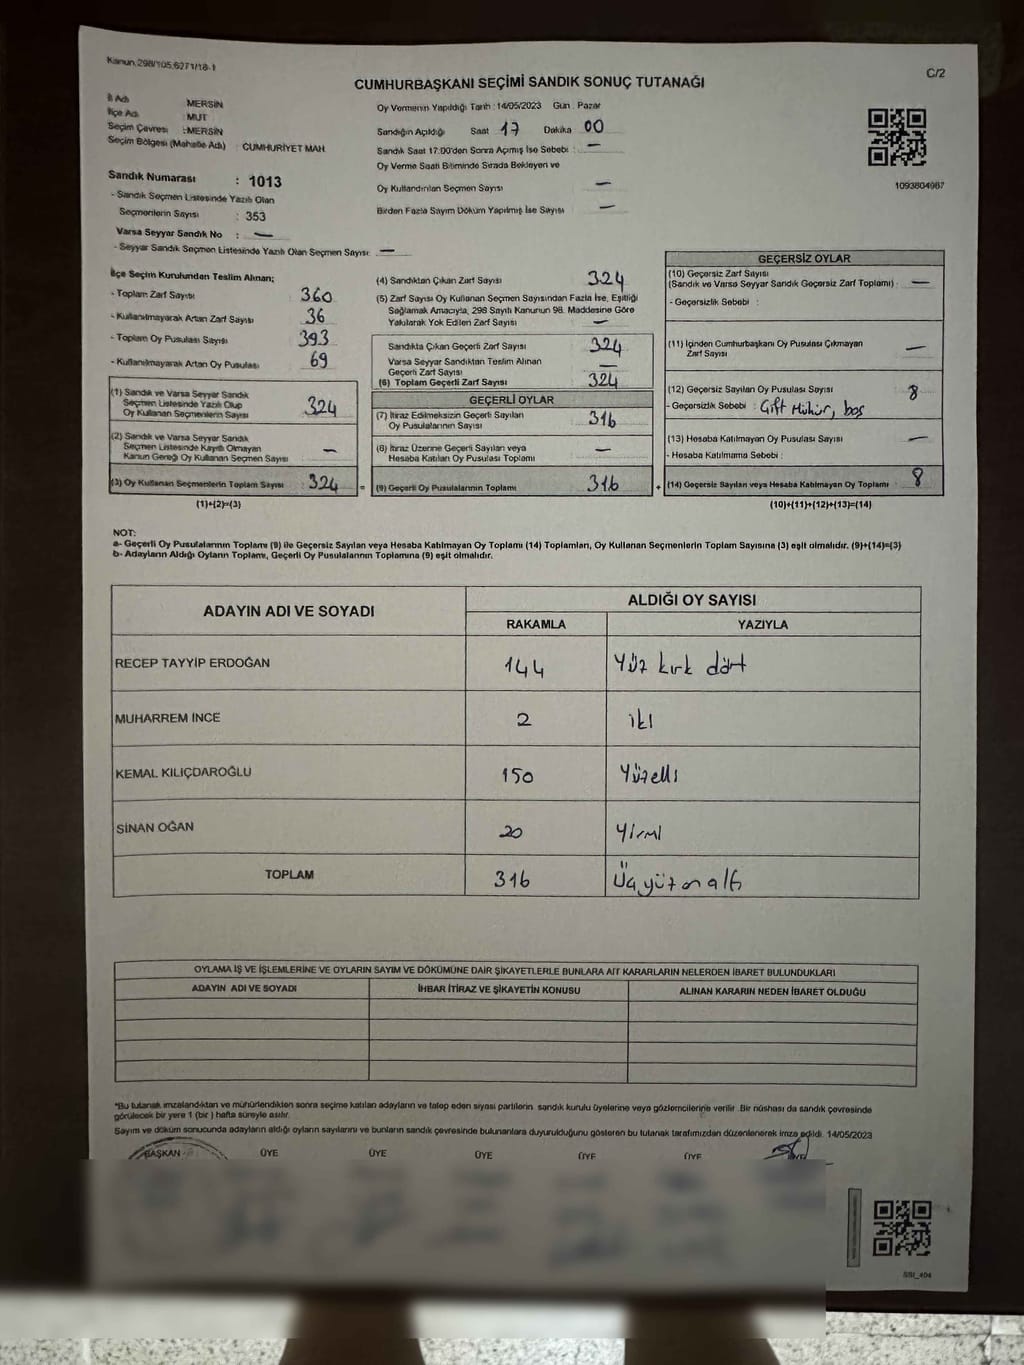 Kanun.298/105,6271/18-1
C/2
CUMHURBAŞKANI SEÇİMİ SANDIK SONUÇ TUTANAĞI
İl Adı : MERSİN
İlçe Adı : MUT
Seçim Çevresi : MERSİN
Seçim Bölgesi (Mahalle Adı) : CUMHURİYET MAH.
Sandık Numarası : 1013
- Sandık Seçmen Listesinde Yazılı Olan
Seçmenlerin Sayısı : 353
Varsa Seyyar Sandık No : —
- Seyyar Sandık Seçmen Listesinde Yazılı Olan Seçmen Sayısı: —
Oy Vermenin Yapıldığı Tarih : 14/05/2023 Gün : Pazar
Sandığın Açıldığı Saat 17 Dakika 00
Sandık Saat 17:00'den Sonra Açımış İse Sebebi : —
Oy Verme Saati Bitiminde Sırada Bekleyen ve
Oy Kullandırılan Seçmen Sayısı —
Birden Fazla Sayım Döküm Yapılmış İse Sayısı —
1093804987
İlçe Seçim Kurulundan Teslim Alınan;
- Toplam Zarf Sayısı 360
- Kullanılmayarak Artan Zarf Sayısı 36
- Toplam Oy Pusulası Sayısı 393
- Kullanılmayarak Artan Oy Pusulası 69
(1) Sandık ve Varsa Seyyar Sandık
Seçmen Listesinde Yazılı Olup
Oy Kullanan Seçmenlerin Sayısı 324
(2) Sandık ve Varsa Seyyar Sandık
Seçmen Listesinde Kayıtlı Olmayan
Kanun Gereği Oy Kullanan Seçmen Sayısı —
(3) Oy Kullanan Seçmenlerin Toplam Sayısı 324
(1)+(2)=(3)
=
(4) Sandıktan Çıkan Zarf Sayısı 324
(5) Zarf Sayısı Oy Kullanan Seçmen Sayısından Fazla İse, Eşitliği
Sağlamak Amacıyla, 298 Sayılı Kanunun 98. Maddesine Göre
Yakılarak Yok Edilen Zarf Sayısı —
Sandıkta Çıkan Geçerli Zarf Sayısı 324
Varsa Seyyar Sandıktan Teslim Alınan
Geçerli Zarf Sayısı —
(6) Toplam Geçerli Zarf Sayısı 324
GEÇERLİ OYLAR
(7) İtiraz Edilmeksizin Geçerli Sayılan
Oy Pusulalarının Sayısı 316
(8) İtiraz Üzerine Geçerli Sayılan veya
Hesaba Katılan Oy Pusulası Toplamı —
(9) Geçerli Oy Pusulalarının Toplamı 316
+
GEÇERSİZ OYLAR
(10) Geçersiz Zarf Sayısı
(Sandık ve Varsa Seyyar Sandık Geçersiz Zarf Toplamı) : —
- Geçersizlik Sebebi :
(11) İçinden Cumhurbaşkanı Oy Pusulası Çıkmayan
Zarf Sayısı —
(12) Geçersiz Sayılan Oy Pusulası Sayısı 8
- Geçersizlik Sebebi : Çift Mühür, boş
(13) Hesaba Katılmayan Oy Pusulası Sayısı —
- Hesaba Katılmama Sebebi :
(14) Geçersiz Sayılan veya Hesaba Katılmayan Oy Toplamı 8
(10)+(11)+(12)+(13)=(14)
NOT:
a- Geçerli Oy Pusulalarının Toplamı (9) ile Geçersiz Sayılan veya Hesaba Katılmayan Oy Toplamı (14) Toplamları, Oy Kullanan Seçmenlerin Toplam Sayısına (3) eşit olmalıdır. (9)+(14)=(3)
b- Adayların Aldığı Oyların Toplamı, Geçerli Oy Pusulalarının Toplamına (9) eşit olmalıdır.
ADAYIN ADI VE SOYADI
ALDIĞI OY SAYISI
RAKAMLA YAZIYLA
RECEP TAYYİP ERDOĞAN 144 Yüz kırk dört
MUHARREM İNCE 2 iki
KEMAL KILIÇDAROĞLU 150 Yüzelli
SİNAN OĞAN 20 Yirmi
TOPLAM 316 Üçyüzonaltı
OYLAMA İŞ VE İŞLEMLERİNE VE OYLARIN SAYIM VE DÖKÜMÜNE DAİR ŞİKAYETLERLE BUNLARA AİT KARARLARIN NELERDEN İBARET BULUNDUKLARI
ADAYIN ADI VE SOYADI İHBAR İTİRAZ VE ŞİKAYETİN KONUSU ALINAN KARARIN NEDEN İBARET OLDUĞU
*Bu tutanak imzalandıktan ve mühürlendikten sonra seçime katılan adayların ve talep eden siyasi partilerin sandık kurulu üyelerine veya gözlemcilerine verilir. Bir nüshası da sandık çevresinde
görülecek bir yere 1 (bir) hafta süreyle asılır.
Sayım ve döküm sonucunda adayların aldığı oyların sayılarını ve bunların sandık çevresinde bulunanlara duyurulduğunu gösteren bu tutanak tarafımızdan düzenlenerek imza edildi. 14/05/2023
BAŞKAN ÜYE ÜYE ÜYE ÜYE ÜYE
SSI_404